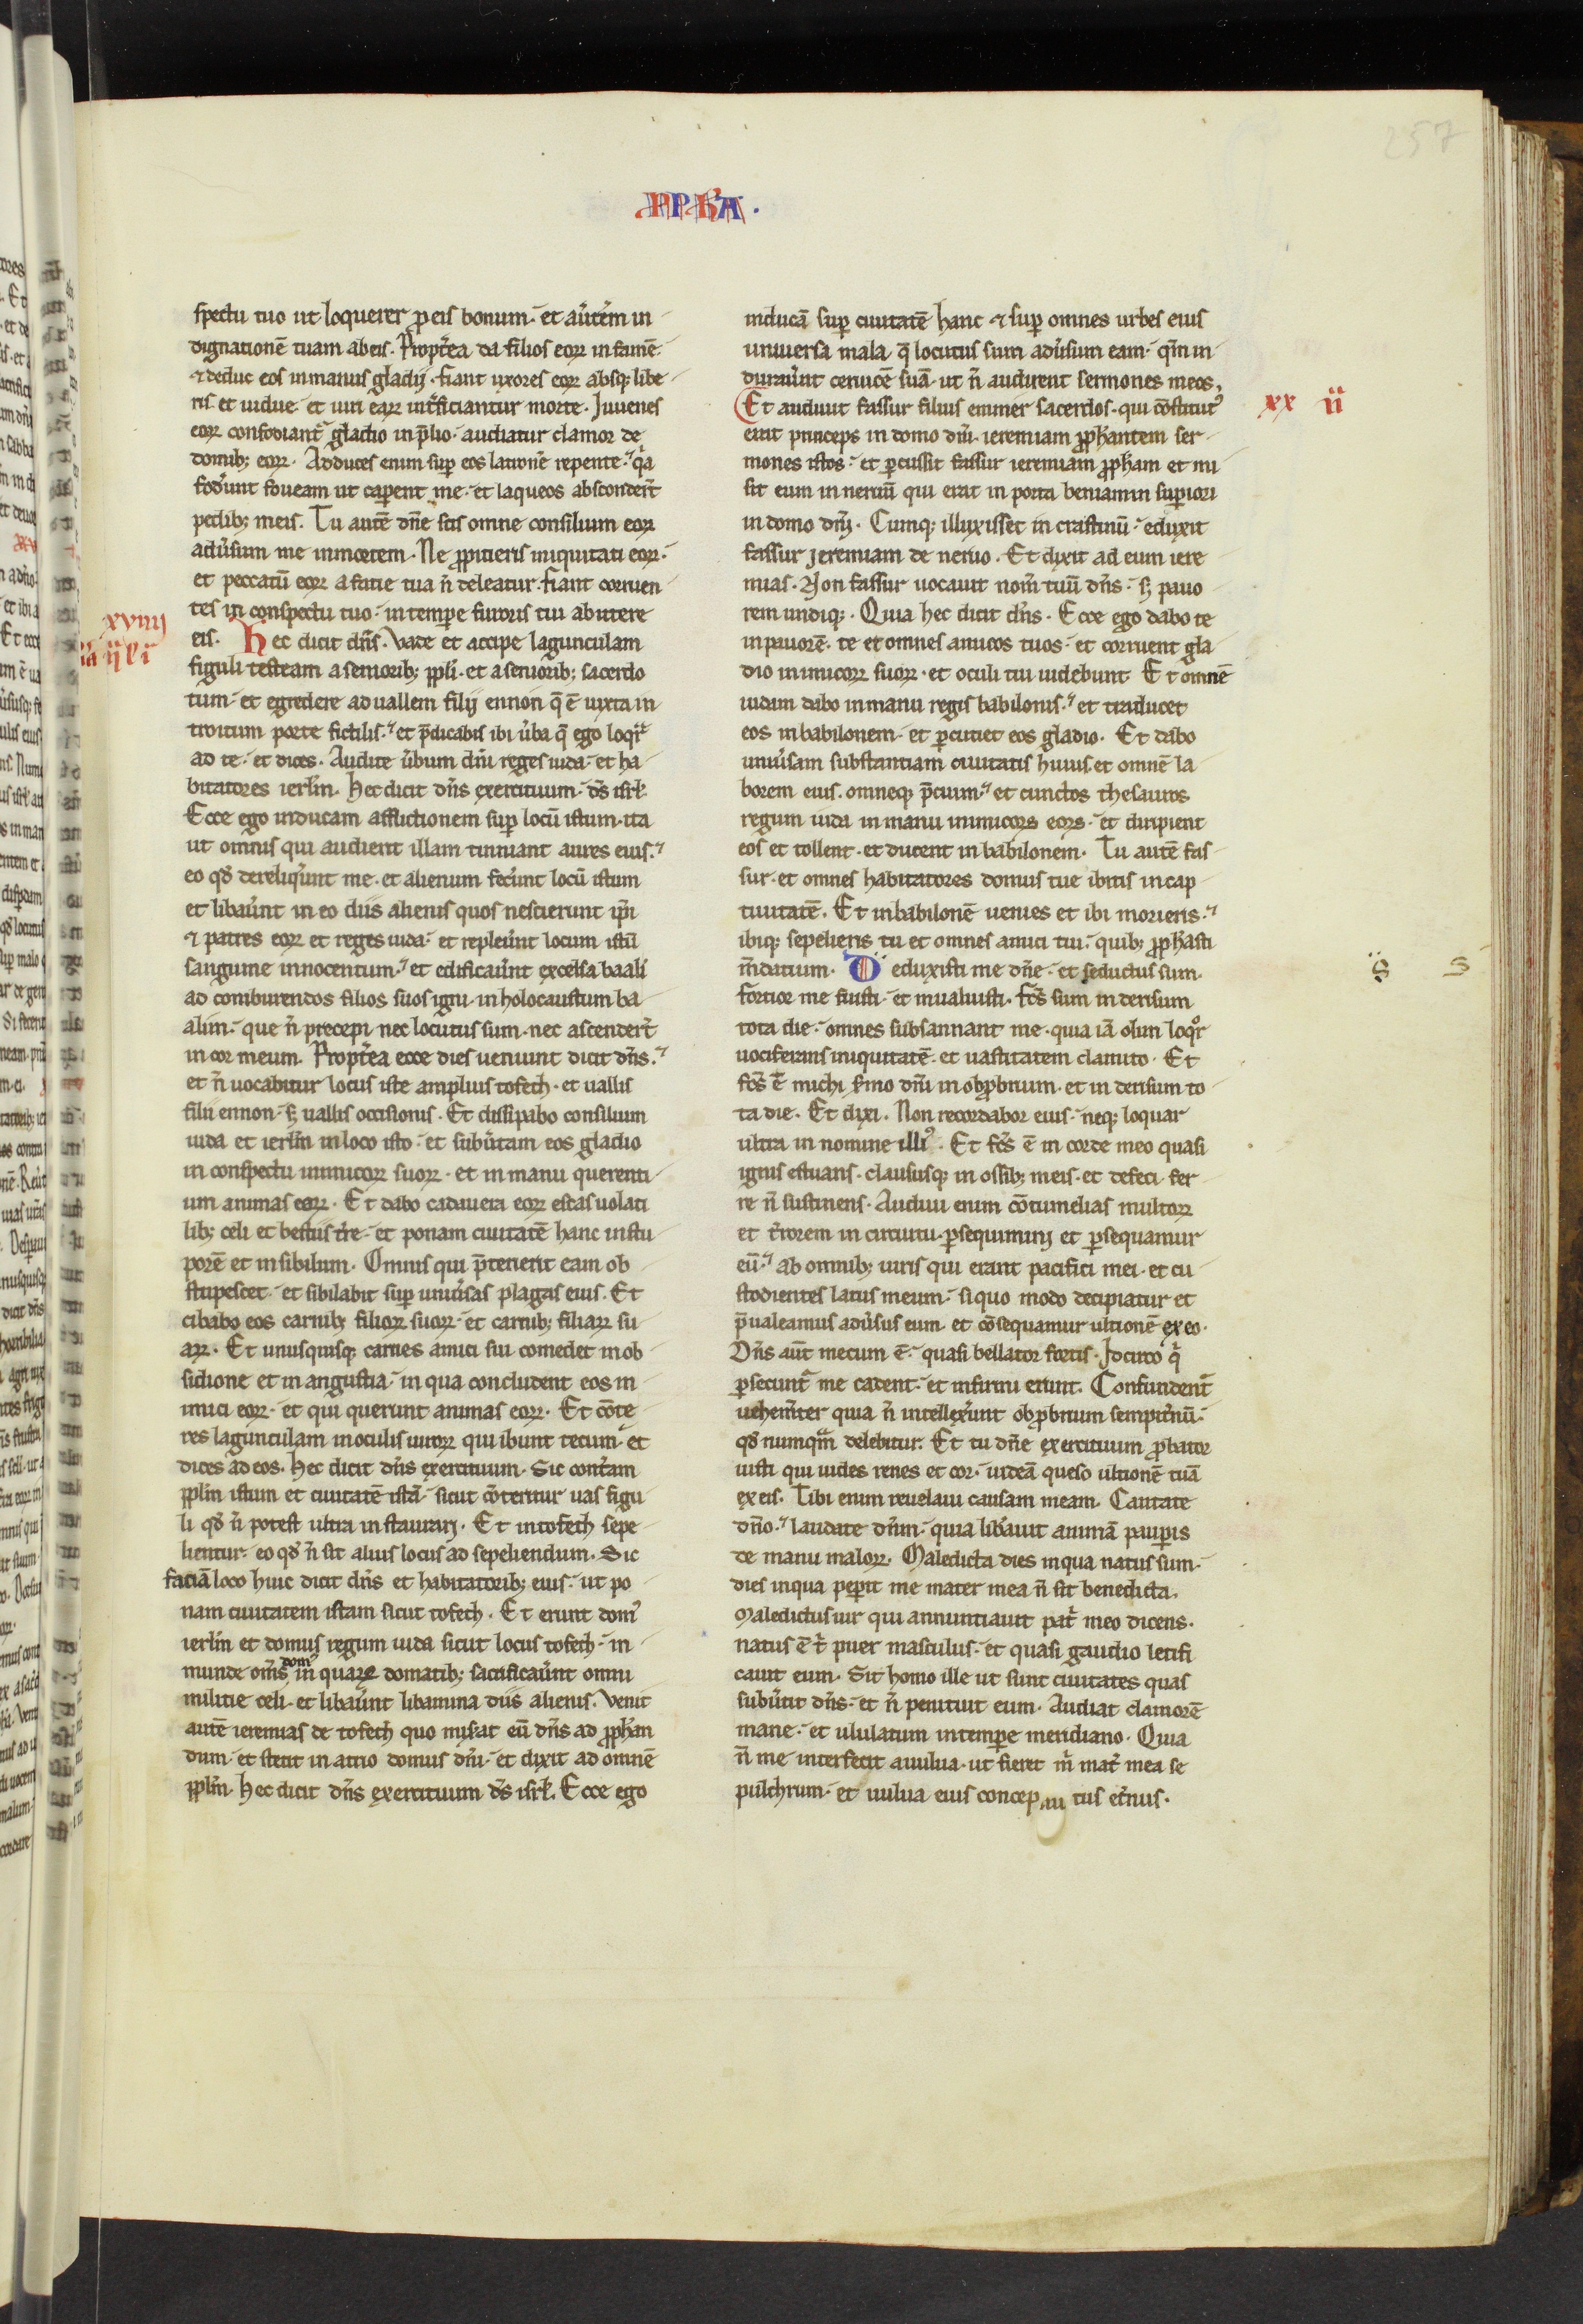 257
PPHA.
spectu tuo ut loquerer ꝓ eis bonum. et aūtēm in
dignationē tuam ab eis. Propt̄ea da filios eoꝝ in famē.
⁊ deduc eos in manus gladij. fiant uxores eoꝝ absq; libe
ris et uidue. et uiri eaꝝ int̄ficiantur morte. Juuenes
eoꝝ confodiant᷑ gladio in p̄lio. audiatur clamor de
domib; eoꝝ. Adduces enim suꝑ eos latronē repente. q̓a
fod̓unt foueam ut caꝑent me. et laqueos absconder̄t
pedib; meis. Tu autē dn̄e scis omne consilium eoꝝ
adūsum me in mortem. Ne ꝓpitieris iniquitati eoꝝ.
et peccatū eoꝝ a facie tua n̄ deleatur. fiant corruen
tes in conspectu tuo. in tempe furoris tui abutere
xviiij
eis. Hec dicit dn̄s. Vade et accipe lagunculam
figuli testeam a seniorib; ppli. et a seniorib; sacerdo
tum. et egredere ad uallem filij ennon q̄ ē iuxta in
troitum porte fictilis. et p̄dicabis ibi ūba q̄ ego loqr̄
ad te. et dices. Audite ūbum dn̄i reges iuda. et ha
bitatores ierl̄m. Hec dicit dn̄s exercituum. ds̄ isrł.
Ecce ego inducam afflictionem suꝑ locū istum. ita
ut omnis qui audierit illam tinniant aures eius.
eo qd̄ dereliq̓unt me. et alienum fec̄unt locū istum
et libaūnt in eo diis alienis quos nescierunt ip̄i
⁊ patres eoꝝ et reges iuda. et repleūnt locum istū
sanguine innocentum. et edificaūnt excelsa baali
ad comburendos filios suos igni. in holocaustum ba
alim. que n̄ precepi nec locutus sum. nec ascender̄t
in cor meum. Propt̄ea ecce dies ueniunt dicit dn̄s.
et n̄ uocabitur locus iste amplius tofech. et uallis
filii ennon. s; uallis occisionis. Et dissipabo consilium
iuda et ierl̄m in loco isto. et subūtam eos gladio
in conspectu inimicoꝝ suoꝝ. et in manu querenti
um animas eoꝝ. Et dabo cadauera eoꝝ escas uolati
lib; celi et bestiis tr̄e. et ponam ciuitatē hanc in stu
porē et in sibilum. Omnis qui p̄terierit eam ob
stupescet. et sibilabit suꝑ uniūsas plagas eius. Et
cibabo eos carnib; filioꝝ suoꝝ. et carnib; filiaꝝ su
aꝝ. Et unusquisq; carnes amici sui comedet in ob
sidione et in angustia. in qua concludent eos in
imici eoꝝ. et qui querunt animas eoꝝ. Et cōte
res lagunculam in oculis uiroꝝ qui ibunt tecum. et
dices ad eos. Hec dicit dn̄s exercituum. Sic cont̄am
ppl̄m istum et ciuitatē istā. sicut cōteritur uas figu
li qd̄ n̄ potest ultra instaurarj. Et in tofech sepe
lientur. eo qd̄ n̄ sit alius locus ad sepeliendum. Sic
faciā loco huic dicit dn̄s et habitatorib; eius. ut po
nam ciuitatem istam sicut tofech. Et erunt domꝰ
ierl̄m et domus regum iuda sicut locus tofech. in
munde om̄s domꝰ in quaꝝ domatib; sacrificaūnt omni
militie celi. et libaūnt libamina diis alienis. Venit
autē ieremias de tofech quo miserat eū dn̄s ad ꝓphan
dum. et stetit in atrio domus dn̄i. et dixit ad omnē
ppl̄m. Hec dicit dn̄s exercituum ds̄ isrł. Ecce ego
inducā suꝑ ciuitatē hanc ⁊ suꝑ omnes urbes eius
uniuersa mala. q̄ locutus sum adūsum eam. qm̄ in
duraūnt ceruicē suā. ut n̄ audirent sermones meos.
Et audiuit fassur filius emmer sacerdos. qui cōstitutꝰ
xx ii
erat princeps in domo dn̄i. ieremiam ꝓphantem ser
mones istos. et ꝑcussit fassur ieremiam ꝓpham et mi
sit eum in neruū qui erat in porta beniamin suꝑiori
in domo dn̄j. Cumq; illuxisset in crastinū. eduxit
fassur jeremiam de neruo. Et dixit ad eum iere
mias. Non fassur uocauit nom̄ tuū dn̄s. s; pauo
rem undiq;. Quia hec dicit dn̄s. Ecce ego dabo te
in pauorē. te et omnes amicos tuos. et corruent gla
dio inimicoꝝ suoꝝ. et oculi tui uidebunt. Et omnē
iudam dabo in manu regis babilonis. et traducet
eos in babilonem. et ꝑcutiet eos gladio. Et dabo
uniūsam substantiam ciuitatis huius. et omnē la
borem eius. omneq; p̄cium. et cunctos thesauros
regum iuda in manu inimicoꝝ eoꝝ. et diripient
eos et tollent. et ducent in babilonem. Tu autē fas
sur. et omnes habitatores domus tue ibitis in cap
tiuitatē. Et in babilonē uenies et ibi morieris.
ibiq; sepelieris tu et omnes amici tui. quib; ꝓphasti
m̄datium. Deduxisti me dn̄e. et seductus sum.
s s
fortior me fuisti. et inualuisti. fc̄s sum in derisum
tota die. omnes subsannant me. quia iā olim loqꝛ
uociferans iniquitatē. et uastitatem clamito. Et
fc̄s ē michi s̄mo dn̄i in obp̄brium. et in derisum to
ta die. Et dixi. Non recordabor eius. neq; loquar
ultra in nomine illiꝰ. Et fc̄s ē in corde meo quasi
ignis estuans. claususq; in ossib; meis. et defeci fer
re n̄ sustinens. Audiui enim cōtumelias multoꝝ
et t̄rorem in circuitu. ꝑsequiminj et ꝑsequamur
eū. ab omnib; uiris qui erant pacifici mei. et cu
stodientes latus meum. si quo modo decipiatur et
p̄ualeamus adūsus eum. et cōsequamur ultionē ex eo.
Dn̄s aūt mecum ē. quasi bellator fortis. Jdcirco q̓
ꝑsecunt᷑ me cadent. et infirmi erunt. Confundent᷑
uehem̄ter quia n̄ intellex̄unt obp̄brium sempit̄nū.
qd̄ numqm̄ delebitur. Et tu dn̄e exercituum ꝓbator
iusti qui uides renes et cor. uideā queso ultionē tuā
ex eis. Tibi enim reuelaui causam meam. Cantate
dn̄o. laudate dn̄m. quia lib̄auit animā pauꝑis
de manu maloꝝ. Maledicta dies in qua natus sum.
dies in qua peꝑit me mater mea n̄ sit benedicta.
Maledictus uir qui annuntiauit pat̄ meo dicens.
natus ē t̄ puer masculus. et quasi gaudio letifi
cauit eum. Sit homo ille ut sunt ciuitates quas
subūtit dn̄s. et n̄ penituit eum. Audiat clamorē
mane. et ululatum in tempe meridiano. Quia
n̄ me interfecit a uulua. ut fieret m̄ mat̄ mea se
pulchrum. et uulua eius concep tus et̄nus.